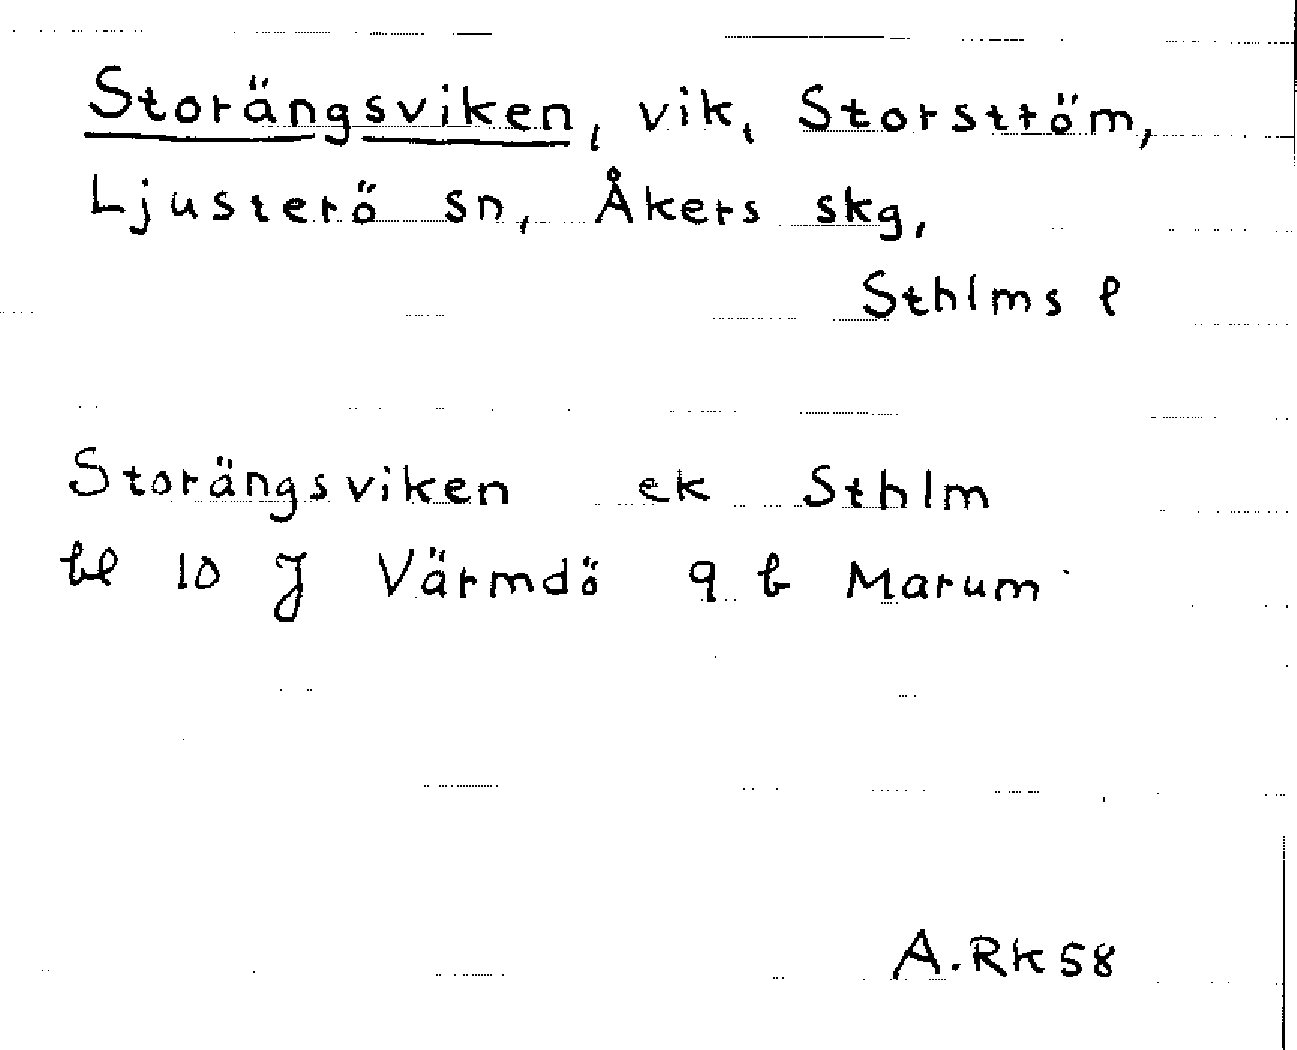 Storängsviken, vik, Storström,
Ljusterö sn, Åkers skg,
Sthlms l
Storängsviken ek Sthlm
bl 10 J Värmdö 9 b Marum
A.Rk 58